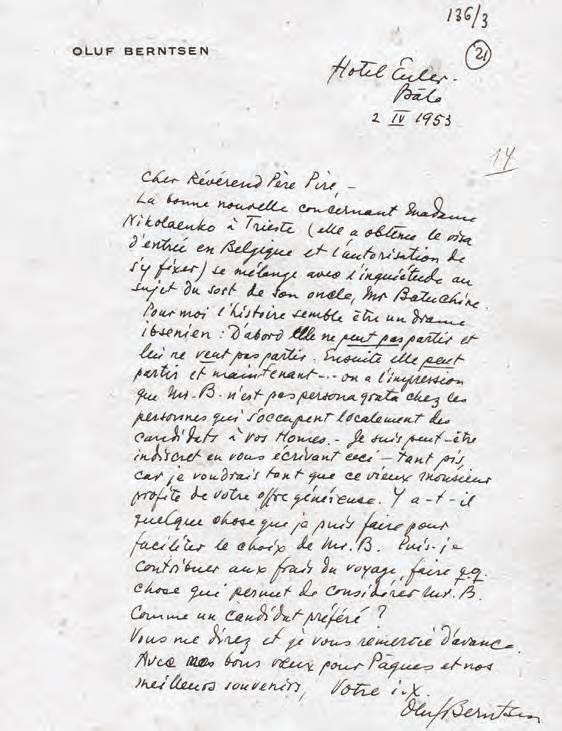 136/3
21
OLUF BERNTSEN
Hotel Euler.
Bâle
2 IV 1953
14
Cher Révérend Père Pire, -
La bonne nouvelle concernant Madame
Nikolaenko à Trieste (elle a obtenu le visa
d'entrée en Belgique et l'autorisation de
s'y fixer) se mélange avec l'inquiétude au
sujet du sort de son oncle, Mr Batuchine.
Pour moi l'histoire semble être un drame
ibsenien : D'abord elle ne peut pas partir et
lui ne veut pas partir. Ensuite elle peut
partir et maintenant -- on a l'impression
que Mr. B. n'est pas persona grata chez les
personnes qui s'occupent localement des
candidats à vos Homes. - Je suis peut-être
indiscret en vous écrivant ceci - tant pis,
car je voudrais tant que ce vieux monsieur
profite de votre offre généreuse. Y a-t-il
quelque chose que je puis faire pour
faciliter le choix de Mr. B. Puis-je
contribuer aux frais du voyage, faire q.q.
chose qui permet de considérer Mr. B.
comme un candidat préféré ?
Vous me direz et je vous remercie d'avance.
Avec nos bons vœux pour Pâques et nos
meilleurs souvenirs, Votre
Oluf Berntsen